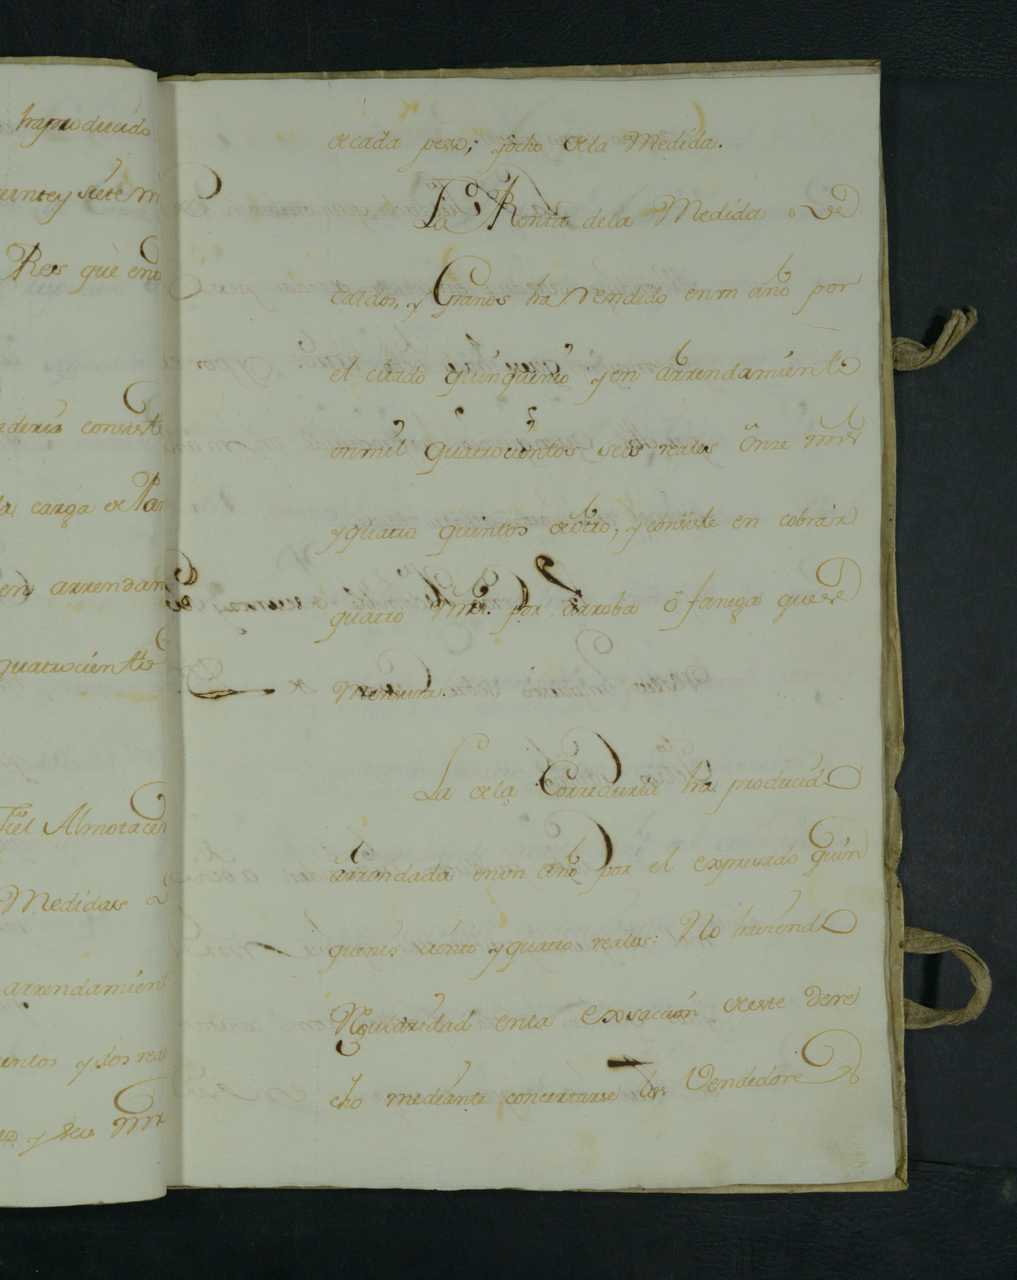 ha producido
veinte y siete m
Res què en
aduria consiste
la carga de Pan
en arrendam
quatrocient
Fiel Almotacen
Medidas
arrendamien
entos y dos rea
y seis mrs
de cada peso; y ocho de la Medida.
La Renta dela Medida de
Caldos, y Granos ha rendido en un año por
el citado quinquenio y en arrendamiento
un mil quatrocientos seis reales onze mrs
y quatro quintos de otro, y consiste en cobrar
quatro mrs. por arroba ó fanega que se
Mensura.
La dela Correduria ha producido
arrendada en un año por el expresado quin
quenio ciento y quatro reales: No haviendo
Regularidad en la exsacción de este dere
cho mediante concertarse los Vendedore